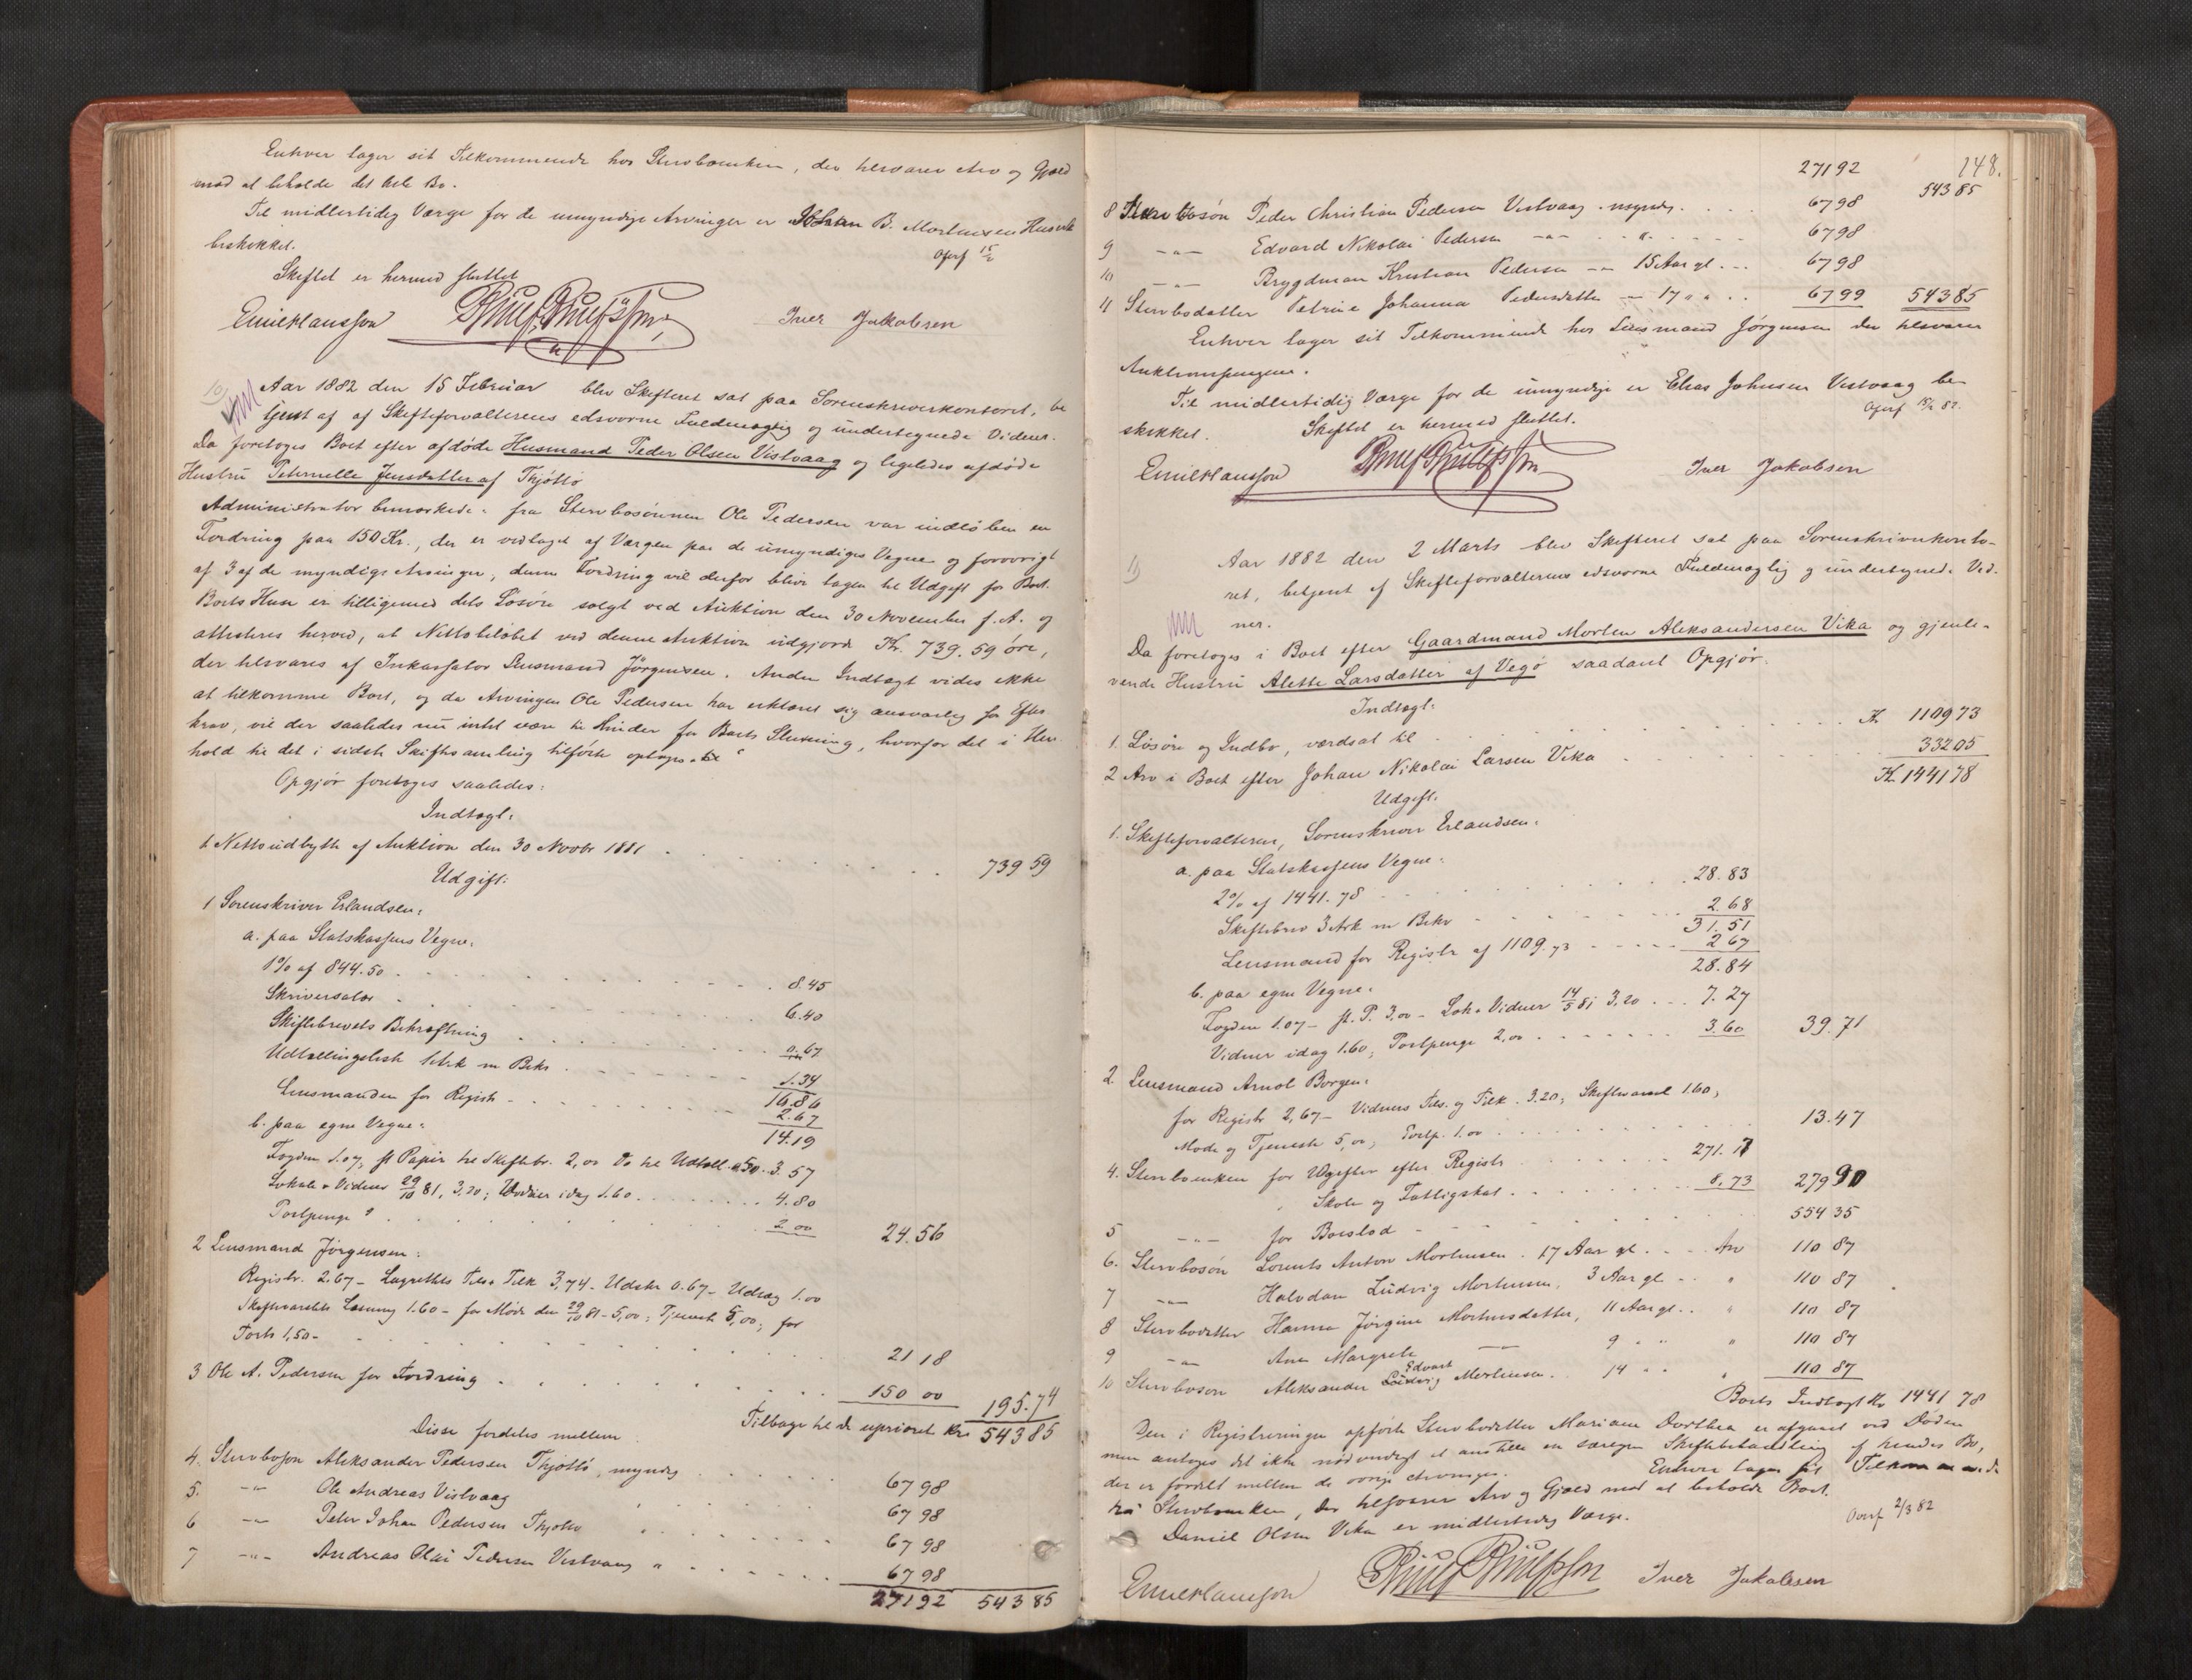 Enhver tager sit Tilkommende hos Stervboenken, der tilsvarer Arv og Gjæld
mod at beholde det hele Bo.
Til midlertidig Værge for de umyndige Arvinger er Johan B. Mortensen Husvik
beskikket.
Skiftet er hermed sluttet
Iver Jakobsen
Aar 1882 den 15 Februar blev Skifteret sat paa Sorenskriverkontoret, be
tjent af af Skifteforvalterens edsvorne Fuldmægtig og undertegnede Vidner.
Da foretoges Boet efter afdøde Husmand Peder Olsen Vistvaag og ligeledes afdøde
Hustru Peternelle Jensdatter af Thjøttø
Administrator bemærkede: fra Stervbosønnen Ole Pedersen var indløben en
Fordring paa 150 Kr., der er vedtaget af Værgen paa de umyndiges Vegne og forøvrigt
af 3 af de myndige Arvinger, denne Fordring vil derfor blive tagen til Udgift for Boet.
Boets Huse er tilligemed dets Løsøre solgt ved Auktion den 30 November f. A. og
attesteres herved, at Nettobeløbet ved denne Auktion udgjorde Kr. 739.59 øre,
der tilsvares af Inkassator Lensmand Jørgensen. Anden Indtægt vides ikke
at tilkomme Boet, og da Arvingen Ole Pedersen har erklæret sig ansvarlig for Efter
krav, vil der saaledes nu intet være til Hinder for Boets Slutning, hvorfor det i Hen
hold til det i sidste Skiftesamling tilførte optages til
Opgjør foretoges saaledes:
Indtægt:
1 Nettoudbytte af Auktion den 30 Novbr 1881 739 59
Udgift:
1 Sorenskriver Erlandsen:
a. paa Statskassens Vegne:
1% af 844.50 8.45
Skriversalær 6.40
Skiftebrevets Bekræftning 0.67
Udtællingsliste 1 Ark m Bekr 1.34
16.86
Lensmanden for Registr 2.67
14.19
b. paa egne Vegne:
Fogden 1.07, st Papir til Skiftebr. 2,00 Do til Udtæll. 0.50 3.57
Lokale + Vidner 29/10 81, 3,20; Vidner idag 1.60 4.80
Portpenge 2.00 24.56
2 Lensmand Jørgensen:
Registr. 2.67 – Lagrettets Tils + Tilk 3,74 – Udskr 0.67 – Udlæg 1.00
Skiftevarslets Læsning 1.60 – for Møde den 29/10 81 – 5,00; Tjeneste 5,00; for
Porto 1,50 – 21 18
3 Ole A. Pedersen for Fordring 150 00 195.74
Tilbage til de uprioret Kr 543 85
Disse fordeles mellem
4. Stervbosøn Aleksander Pedersen Thjøttø, myndig 67 98
5. –"– Ole Andreas Vistvaag 67 98
6 –"– Peter Johan Pedersen Thjøttø 67 98
7 –"– Andreas Olai Pedersen Vestvaag " 67 98
271 92 543 85
148.
271 92 543 85
8 Stervbosøn Peder Christian Pedersen Vestvaag myndig. 67 98
9 –"– Edvard Nikolai Pedersen –"– " 67 98
10 –"– Brygdman Kristian Pedersen –"– 15 Aar gl. 67 98
11 Stervbodatter Petrine Johanna Pedersdatter – 17 " " 67 99 543 85
Enhver tager sit Tilkommende hos Lensmand Jørgensen der tilsvarer
Auktionspengene.
Til midlertidig Værge for de umyndige er Elias Johnsen Vestvaag be
skikket. 15/2 82.
Skiftet er hermed sluttet.
Iver Jakobsen
Aar 1882 den 2 Marts blev Skifteret sat paa Sorenskriverkonto-
ret, betjent af Skifteforvalterens edsvorne Fuldmægtig og undertegnede Vid-
ner.
Da foretoges i Boet efter Gaardmand Morten Aleksandersen Vika og gjenle-
vende Hustru Alette Larsdatter af Vegø saadant Opgjør.
Indtægt:
1. Løsøre og Indbo, værdsat til K. 1109 73
2 Arv i Boet efter Johan Nikolai Larsen Vika 332 05
K. 1441 78
Udgift.
1. Skifteforvalteren, Sorenskriver Erlandsen:
a. paa Statskassens Vegne:
2% af 1441.78 28.83
Skiftebrev 3 Ark m Bekr 2.68
31.51
Lensmand for Registr af 1109.73 2 67
28.84
b. paa egne Vegne.
Fogden 1.07 – st. P. 3,00 – Lok + Vidner 14/5 81 3,20 7.27
Vidner idag 1.60; Portpenge 2,00 3.60 39.71
2. Lensmand Arnol Borgen:
for Registr 2,67 – Vidners Tils. og Tilk. 3.20; Skiftevarsel 1.60,
Møde og Tjeneste 5,00; Portp. 1.00 13.47
4. Stervboenken for Udgifter efter Registr 271.17
Skole og Fattigskat 8.73 279 90
5 –"– for Boeslod 554 35
6. Stervbosøn Lorents Anton Mortensen. 17 Aar gl. Arv 110 87
7 –"– Halvdan Ludvig Mortensen, 3 Aar gl " 110 87
8 Stervbodatter Hanna Jørgine Mortensdatter, 11 Aar gl. " 110 87
9 –"– Ane Margrete –"– 9 " " " 110 87
10 Stervbosøn Aleksander Edvart Mortensen. 14 " " " 110 87
Boets Indtægt Kr 1441 78
Den i Registreringen opførte Stervbodatter Mariane Dorthea er afgaaet ved Døden
men antages det ikke nødvendigt at anstille en særegen Skiftebehandling af hendes Bo,
der er fordelt mellem de øvrige Arvinger. Enhver tager sit Tilkommende
hos Stervboenken, der tilsvarer Arv og Gjæld mod at beholde Boet.
Daniel Olsen Vika er midlertidig Værge. 2/3 82
Iver Jakobsen